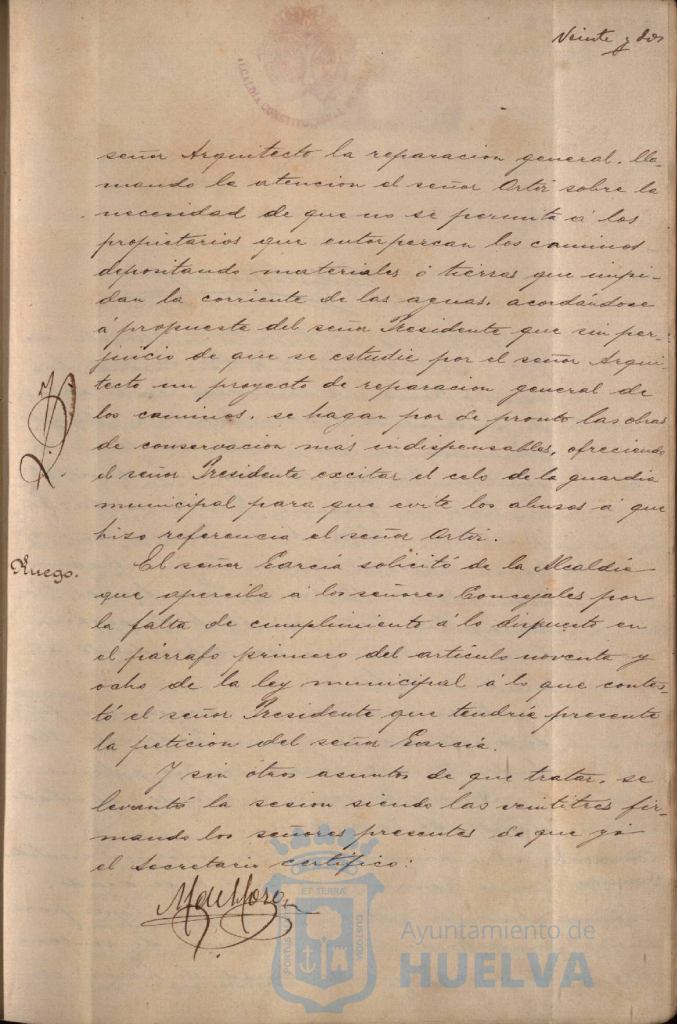 Veinte y dos
ALCALDIA CONSTITUCIONAL
señor Arquitecto la reparacion general, lla-
mando la atencion el señor Ortiz sobre la
necesidad de que no se permita á los
propietarios que entorpezcan los caminos
depositando materiales ó tierras que impi-
dan la corriente de las aguas, acordándose
á propuesta del señor Presidente que sin per-
juicio de que se estudie por el señor Arqui-
tecto un proyecto de reparacion general de
los caminos, se hagan por de pronto las obras
de conservacion más indispensables, ofreciendo
el señor Presidente excitar el celo de la guardia
municipal para que evite los abusos á que
hizo referencia el señor Ortiz.
Ruego.
El señor García solicitó de la Alcaldía
que aperciba á los señores Concejales por
la falta de cumplimiento á lo dispuesto en
el párrafo primero del artículo noventa y
ocho de la ley municipal á lo que contes-
tó el señor Presidente que tendría presente
la peticion del señor García.
Y sin otros asuntos de que tratar, se
levantó la sesion siendo las veintitres fir-
mando los señores presentes de que yo
el Secretario certifico:
PORTUS MARIS ET TERRÆ CUSTODIA
Ayuntamiento de
HUELVA